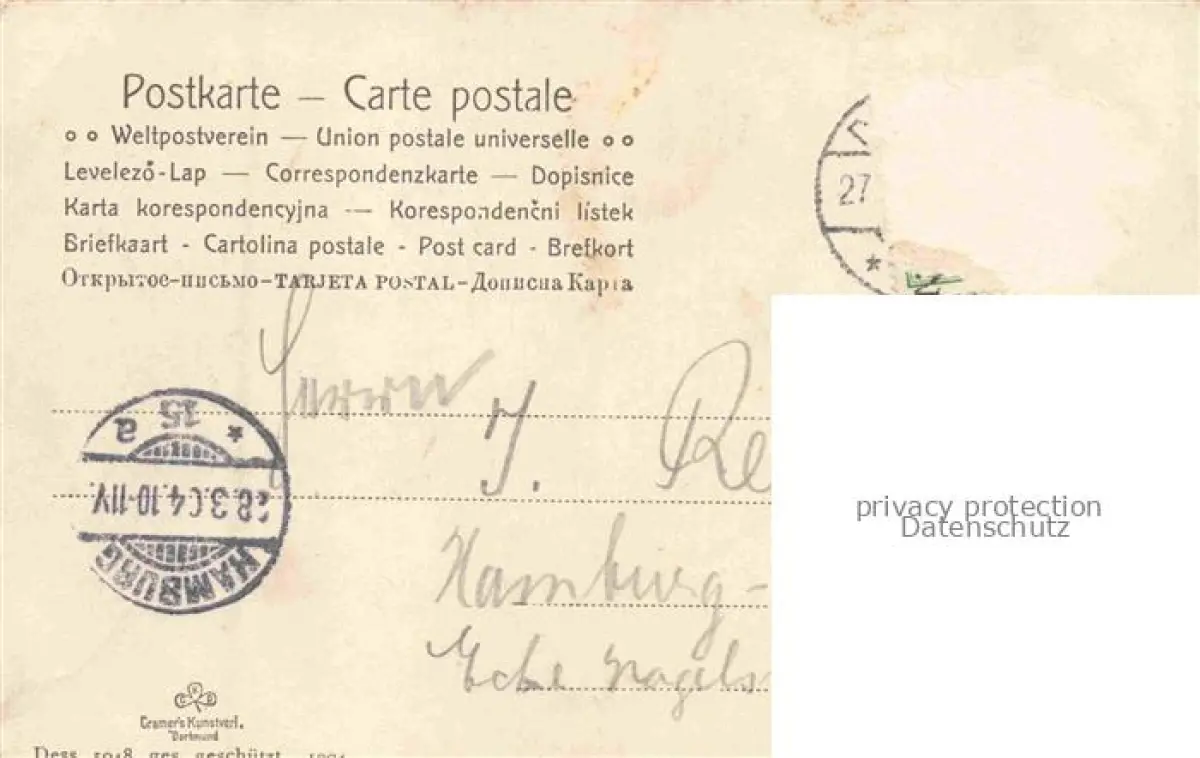 Postkarte — Carte postale
Weltpostverein — Union postale universelle
Levelező-Lap — Correspondenzkarte — Dopisnice
Karta korespondencyjna — Korespondenčni lístek
Briefkaart - Cartolina postale - Post card - Brefkort
Открытое-письмо-TARJETA POSTAL-Дописна Карта
27
Herrn
J. Re
Hamburg-
Ecke Nagels
HAMBURG
28.3.04.10-11V.
* 15 a
privacy protection
Datenschutz
C K D
Cramer's Kunstverl.
Dortmund
Dess. 5048 ges. geschützt. 1904